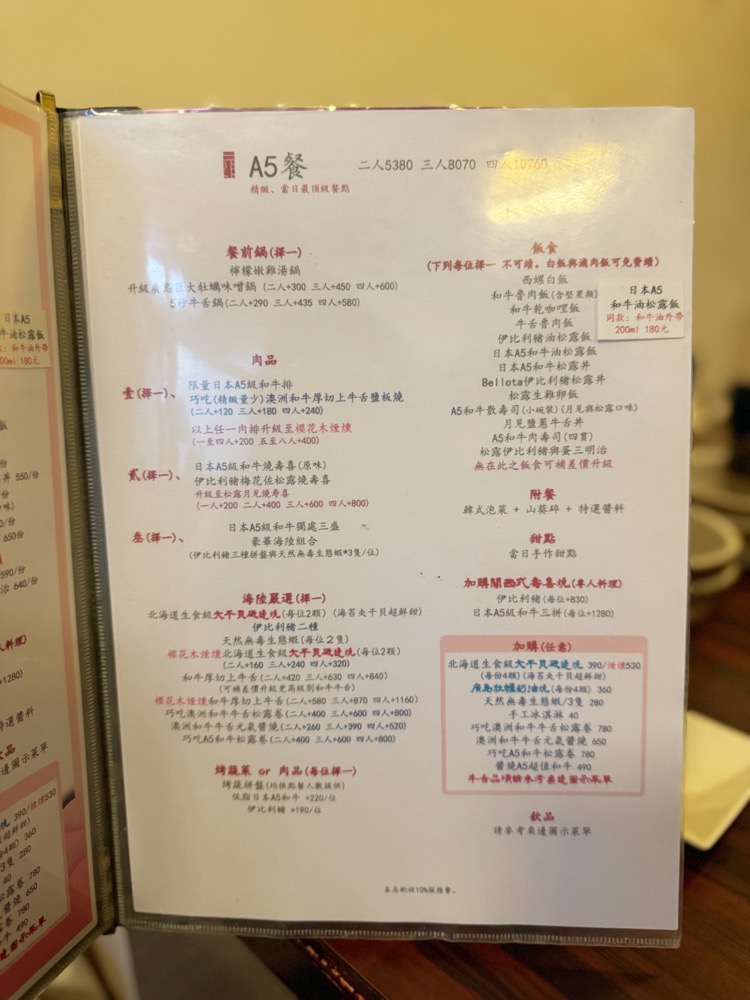 A5餐
二人5380 三人8070 四人10760
精緻、當日最頂級餐點
餐前鍋(擇一)
檸檬嫩雞湯鍋
升級廣島巨大牡蠣味噌鍋 (二人+300 三人+450 四人+600)
5秒牛舌鍋(二人+290 三人+435 四人+580)
肉品
壹(擇一)、
限量日本A5級和牛排
巧吃(精緻量少)澳洲和牛厚切上牛舌鹽板燒
(二人+120 三人+180 四人+240)
以上任一肉排升級至櫻花木煙燻
(一至四人+200 五至八人+400)
貳(擇一)、
日本A5級和牛燒壽喜(原味)
伊比利豬梅花佐松露燒壽喜
升級至松露月見燒壽喜
(一人+200 二人+400 三人+600 四人+800)
叁(擇一)、
日本A5級和牛獨處三盛
豪華海陸組合
(伊比利豬三種拼盤與天然無毒生態蝦*3隻/位)
海陸嚴選(擇一)
北海道生食級大干貝磯邊燒(每位2顆) (海苔夾干貝超鮮甜)
伊比利豬二種
天然無毒生態蝦(每位2隻)
櫻花木煙燻北海道生食級大干貝磯邊燒(每位2顆)
(二人+160 三人+240 四人+320)
和牛厚切上牛舌(二人+420 三人+630 四人+840)
(可補差價升級更高級別和牛牛舌)
櫻花木煙燻和牛厚切上牛舌(二人+580 三人+870 四人+1160)
巧吃澳洲和牛牛舌松露卷(二人+400 三人+600 四人+800)
澳洲和牛牛舌元氣醬燒(二人+260 三人+390 四人+520)
巧吃A5和牛松露卷(二人+400 三人+600 四人+800)
烤蔬菜 or 肉品(每位擇一)
烤蔬拼盤(均依點餐人數提供)
低脂日本A5和牛 +220/位
伊比利豬 +190/位
飯食
(下列每位擇一 不可續。白飯與滷肉飯可免費續)
西螺白飯
和牛魯肉飯(含堅果類)
和牛乾咖哩飯
牛舌魯肉飯
伊比利豬油松露飯
日本A5和牛油松露飯
日本A5和牛松露丼
Bellota伊比利豬松露丼
松露生雞卵飯
A5和牛散壽司(小碗裝)(月見與松露口味)
月見鹽蔥牛舌丼
A5和牛肉壽司(四貫)
松露伊比利豬與蛋三明治
無在此之飯食可補差價升級
日本A5
和牛油松露飯
同款：和牛油外帶
200ml 180元
附餐
韓式泡菜 + 山葵碎 + 特選醬料
甜點
當日手作甜點
加購關西式壽喜燒(專人料理)
伊比利豬(每位+830)
日本A5級和牛三拼(每位+1280)
加購(任意)
北海道生食級大干貝磯邊燒 390/煙燻530
(每份4顆)(海苔夾干貝超鮮甜)
廣島牡蠣奶油燒(每份4顆) 360
天然無毒生態蝦/3隻 280
手工冰淇淋 40
巧吃澳洲和牛牛舌松露卷 780
澳洲和牛牛舌元氣醬燒 650
巧吃A5和牛松露卷 780
醬燒A5超值和牛 490
牛舌品項請參考桌邊圖示菜單
飲品
請參考桌邊圖示菜單
本店酌收10%服務費。
日本A5
牛油松露飯
：和牛油外帶
00ml 180元
550/份
650/份
590/份
640/份
+1280)
特選醬料
飲品
桌邊圖示菜單
390/煙燻530
360
3隻 280
40
松露卷 780
醬燒 650
露卷 780
和牛 490
邊圖示菜單